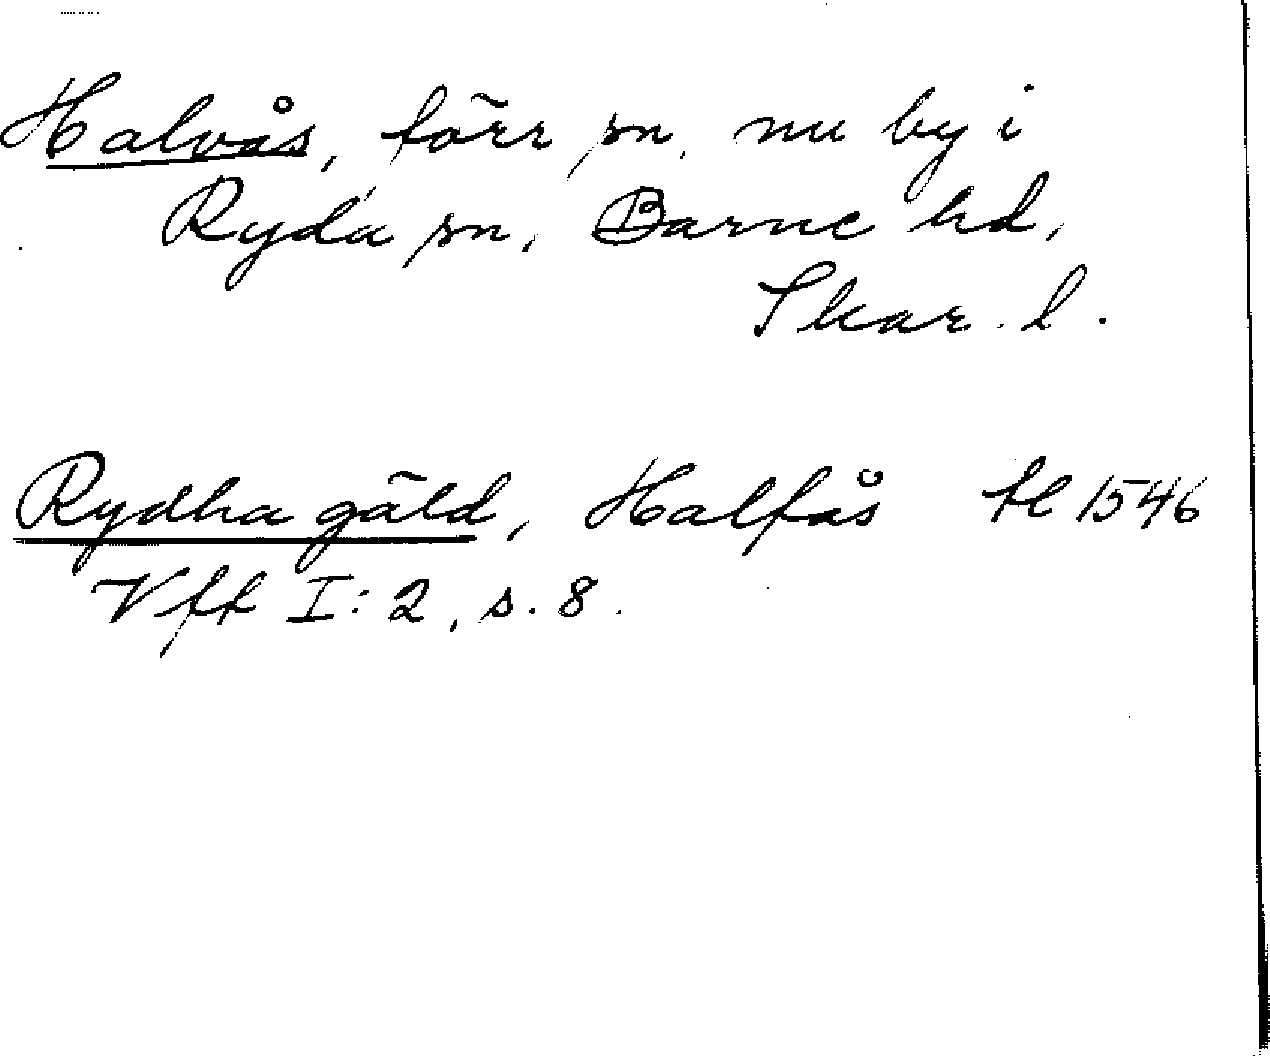 Halvås, förr sn, nu by i
Ryda sn, Barne hd,
Skar. l.
Rydha gäld, Halfås fl 1546
Vff I:2, s. 8.